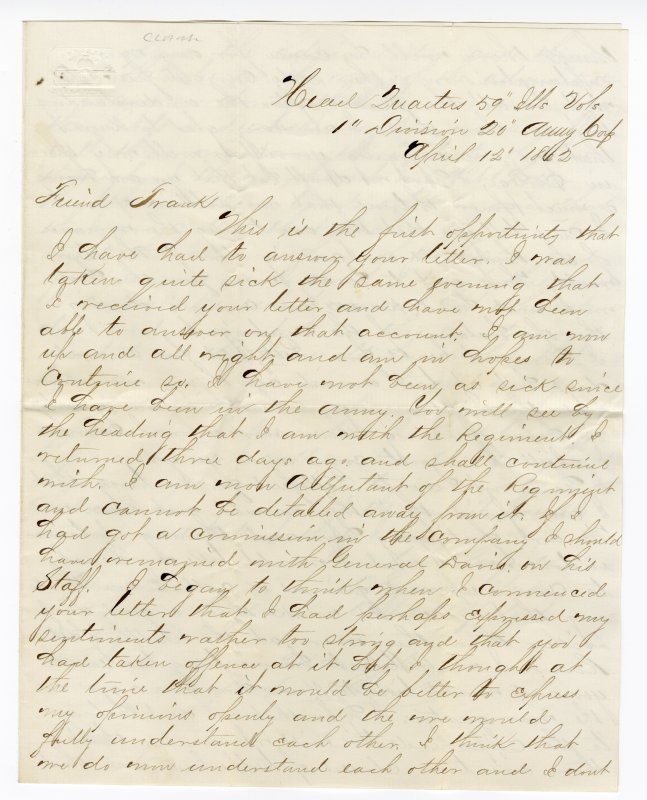 Head Quarters 59" Ills Vols
1" Division 20" Army Corp
April 12" 1862
Friend Frank
This is the first opportunity that
I have had to answer your letter. I was
taken quite sick the same evening that
I received your letter and have not been
able to answer on that account. I am now
up and all right and am in hopes to
continue so. I have not been as sick since
I have been in the army. You will see by
the heading that I am with the Regiment I
returned three days ago. and shall continue
with. I am now Adjutant of the Regiment
and cannot be detailed away from it. If I
had got a commission in the company I should
have remained with General Davis. on his
Staff. I began to think when I commenced
your letter that I had perhaps expressed my
sentiments rather too strong and that you
had taken offence at it but I thought at
the time that it would be better to express
my opinions openly and the we would
fully understand each other. I think that
we do now understand each other and I dont